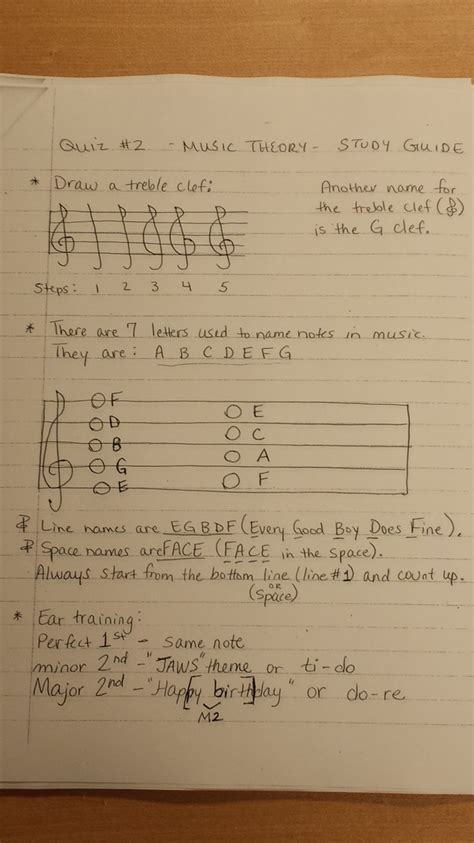 Quiz #2 - Music Theory - Study Guide
* Draw a treble clef:
Another name for
the treble clef (𝄞)
is the G clef.
Steps: 1 2 3 4 5
* There are 7 letters used to name notes in music.
They are: A B C D E F G
F
E
D
C
B
A
G
F
E
Line names are EGBDF (Every Good Boy Does Fine).
Space names are FACE (FACE in the space).
Always start from the bottom line (line #1) and count up.
(or space)
* Ear training:
Perfect 1st - same note
minor 2nd - "JAWS" theme or ti-do
Major 2nd - "Hap[py birth]day" or do-re
M2